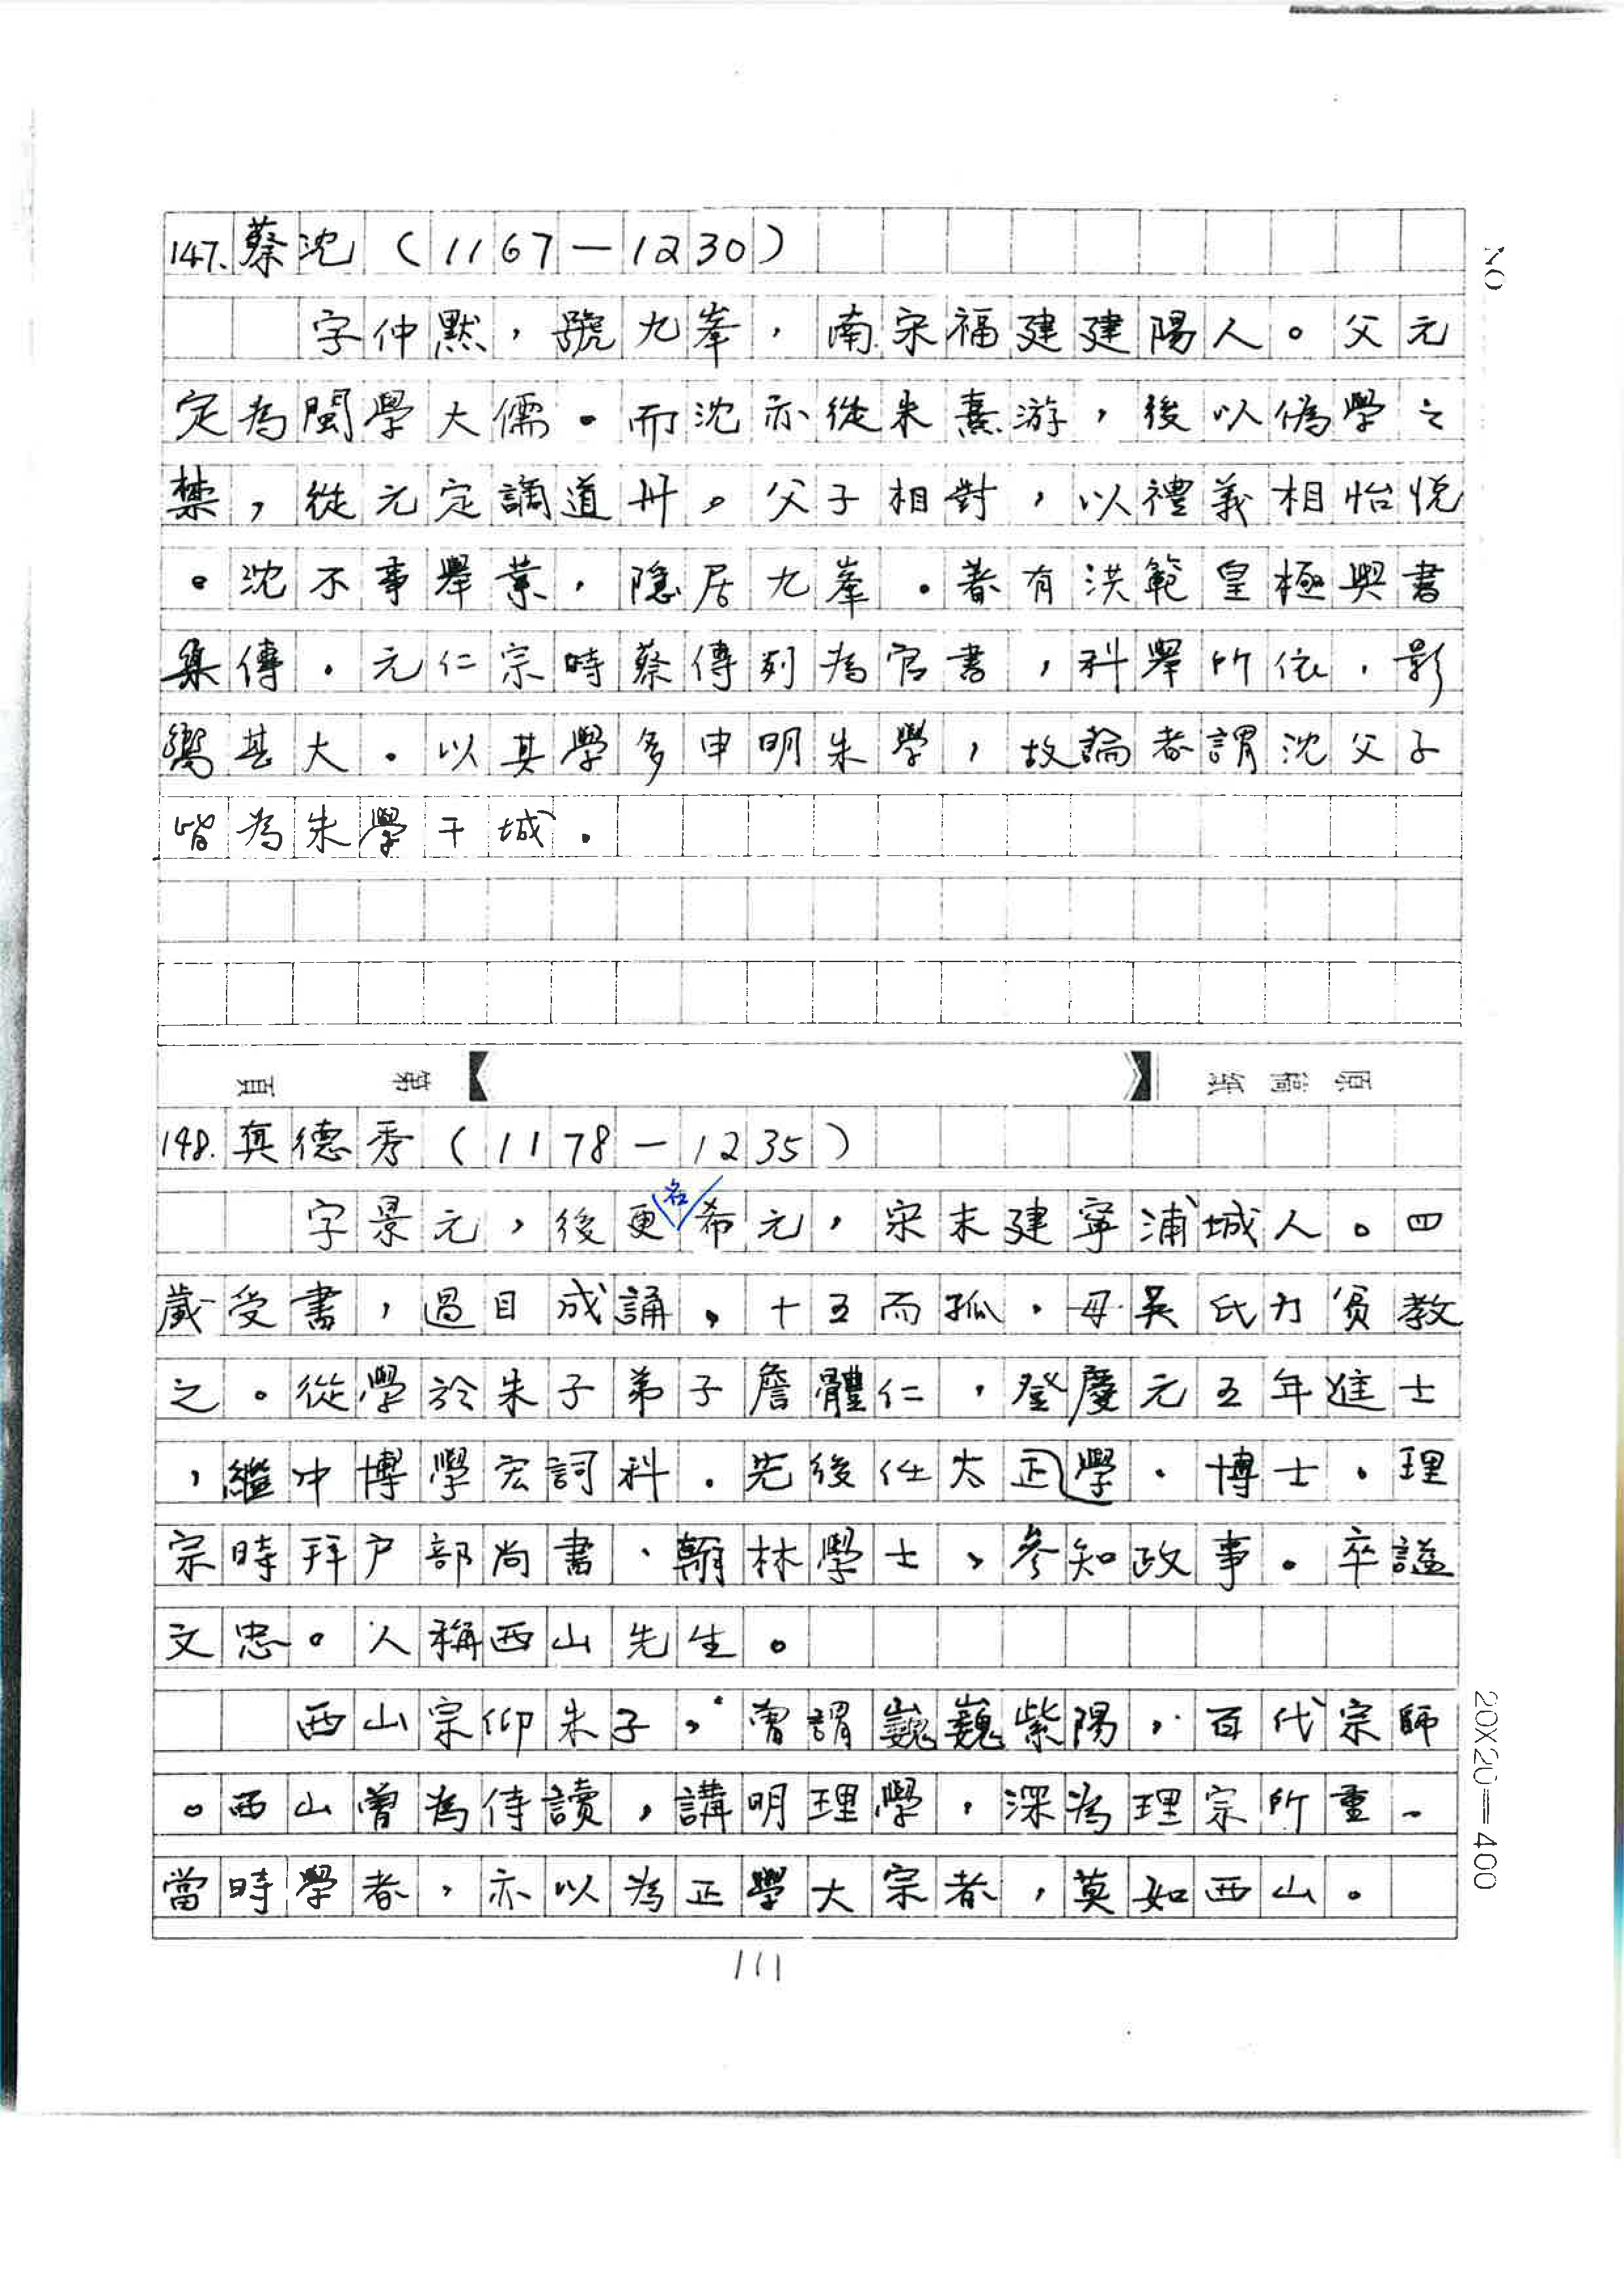 147.蔡沈(1167—1230)
字仲默，號九峯，南宋福建建陽人。父元
定為閩學大儒。而沈亦從朱熹游，後以偽學之
禁，從元定謫道州。父子相對，以禮義相怡悅
。沈不事舉業，隱居九峯。著有洪範皇極與書
集傳。元仁宗時蔡傳列為官書，科舉所依，影
響甚大。以其學多申明朱學，故論者謂沈父子
皆為朱學干城。
頁 第 紙 稿 原
148.真德秀(1178—1235)
字景元，後更名希元，宋末建寧浦城人。四
歲受書，過目成誦。十五而孤，母吳氏力貧教
之。從學於朱子弟子詹體仁，登慶元五年進士
，繼中博學宏詞科。先後任太正學、博士。理
宗時拜户部尚書、翰林學士、參知政事。卒謚
文忠。人稱西山先生。
西山宗仰朱子，嘗謂巍巍紫陽，百代宗師
。西山曾為侍讀，講明理學，深為理宗所重。
當時學者，亦以為正學大宗者，莫如西山。
111
NO
20X20=400